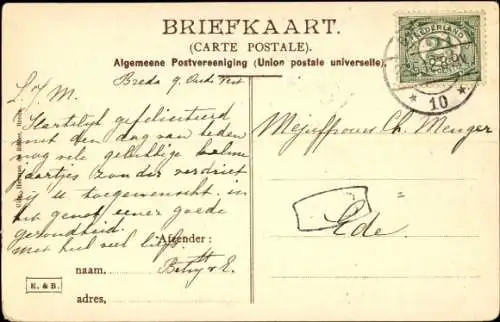 BRIEFKAART.
(CARTE POSTALE).
Algemeene Postvereeniging (Union postale universelle).
NEDERLAND
10
Breda 9. Oude Vest
L. M.
Hartelijk gefeliciteerd
met den dag van heden
nog vele gelukkige
jaartjes zonder verdriet
zij u toegewenscht. in
het genot eener goede
gezondheid.
met heel veel liefs
Afzender:
naam. Betsy v E.
adres,
K. & B.
Mejuffrouw Ch. Menger
Ede.